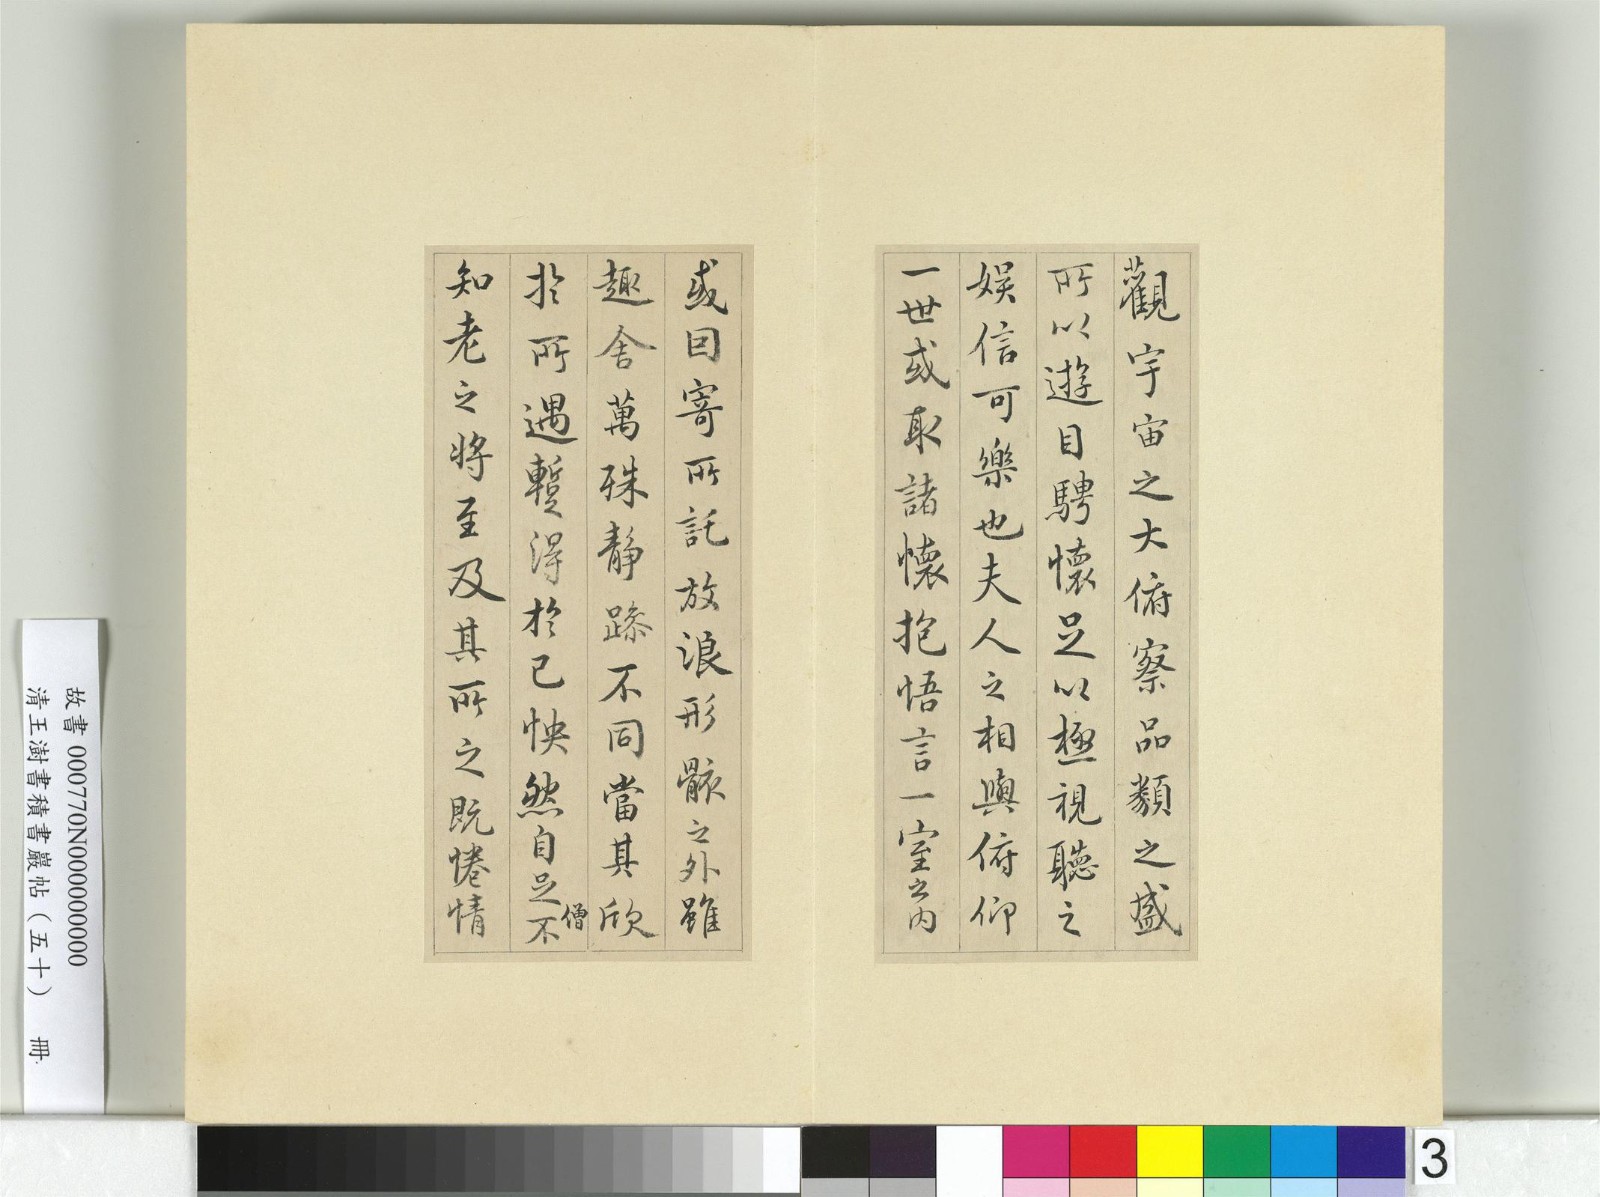 觀宇宙之大俯察品類之盛
所以遊目騁懷足以極視聽之
娛信可樂也夫人之相與俯仰
一世或取諸懷抱悟言一室之內
或因寄所託放浪形骸之外雖
趣舍萬殊靜躁不同當其欣
於所遇暫得於己怏然自足不
僧
知老之將至及其所之既惓情
故書 000770N000000000
清王澍書積書巖帖（五十） 冊
3